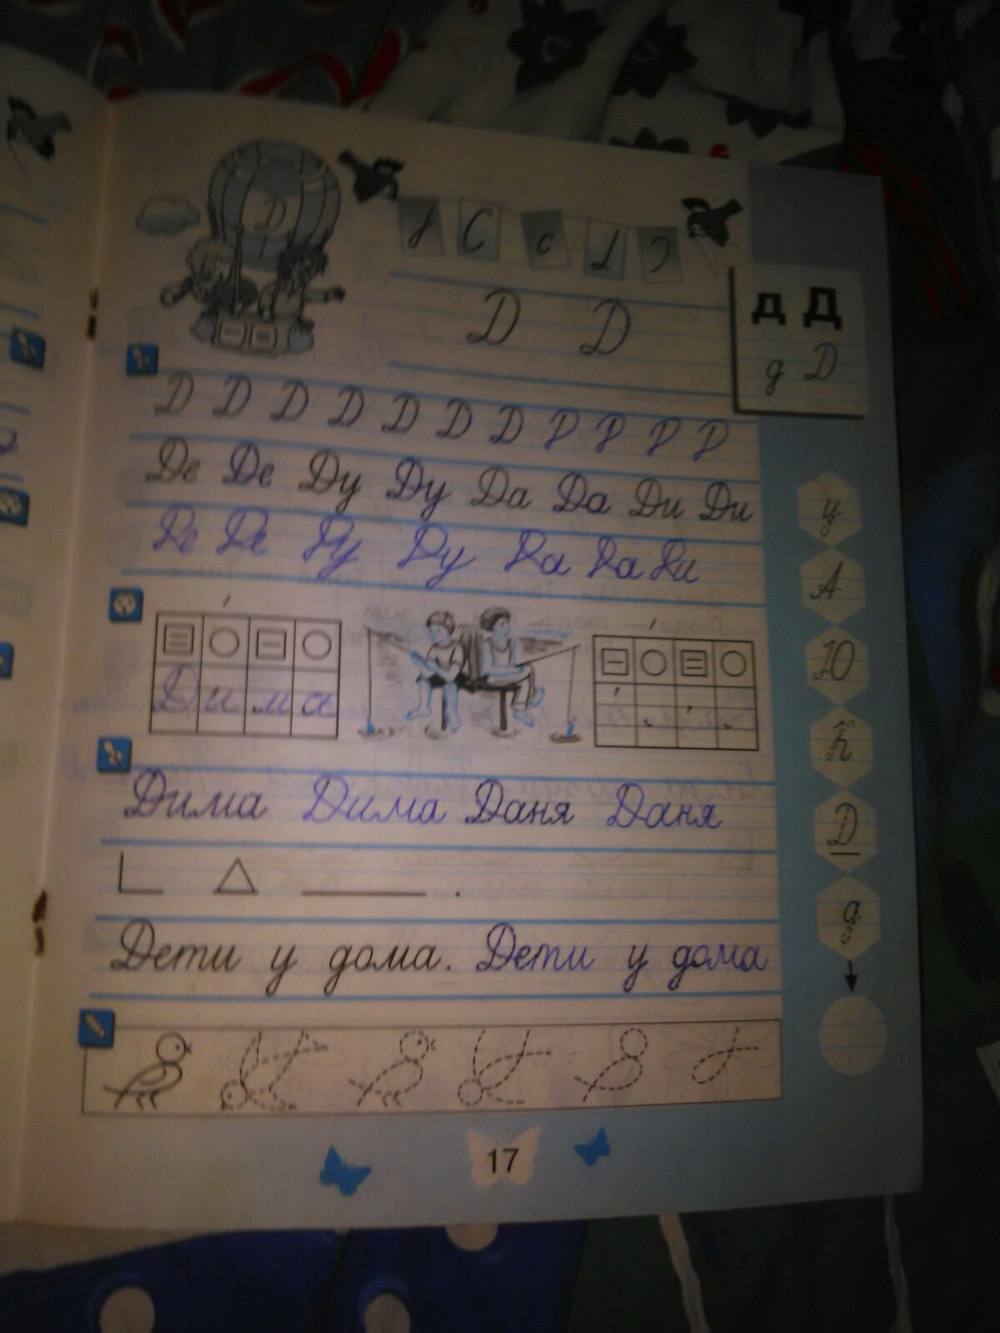 Д
С с
Д Д
д Д
д Д
Д Д Д Д Д Д Д Р Р Р Р
Де Де Ду Ду Да Да Ди Ди
Де Де Ду Ду Да Да Ди
Дима
Дима Дима Даня Даня
Дети у дома. Дети у дома
у
А
Ю
Д
д
17